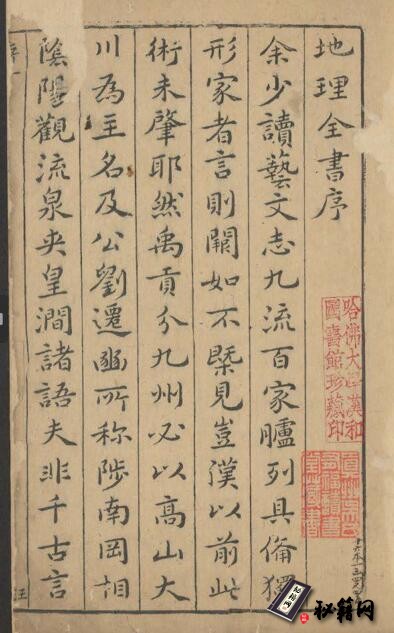 地理全書序
余少讀藝文志九流百家臚列具備獨
形家者言則闕如不槩見豈漢以前此
術未肇耶然禹貢分九州必以高山大
川為主名及公劉遷豳所稱陟南岡相
陰陽觀流泉夾皇澗諸語夫非千古言
哈佛大學漢和
圖書館珍藏印
秘籍网